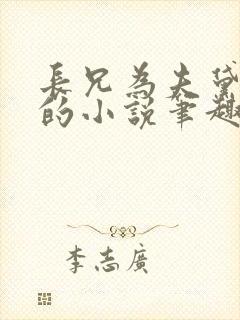 長兄為夫黛
的小說筆趣
李志廣